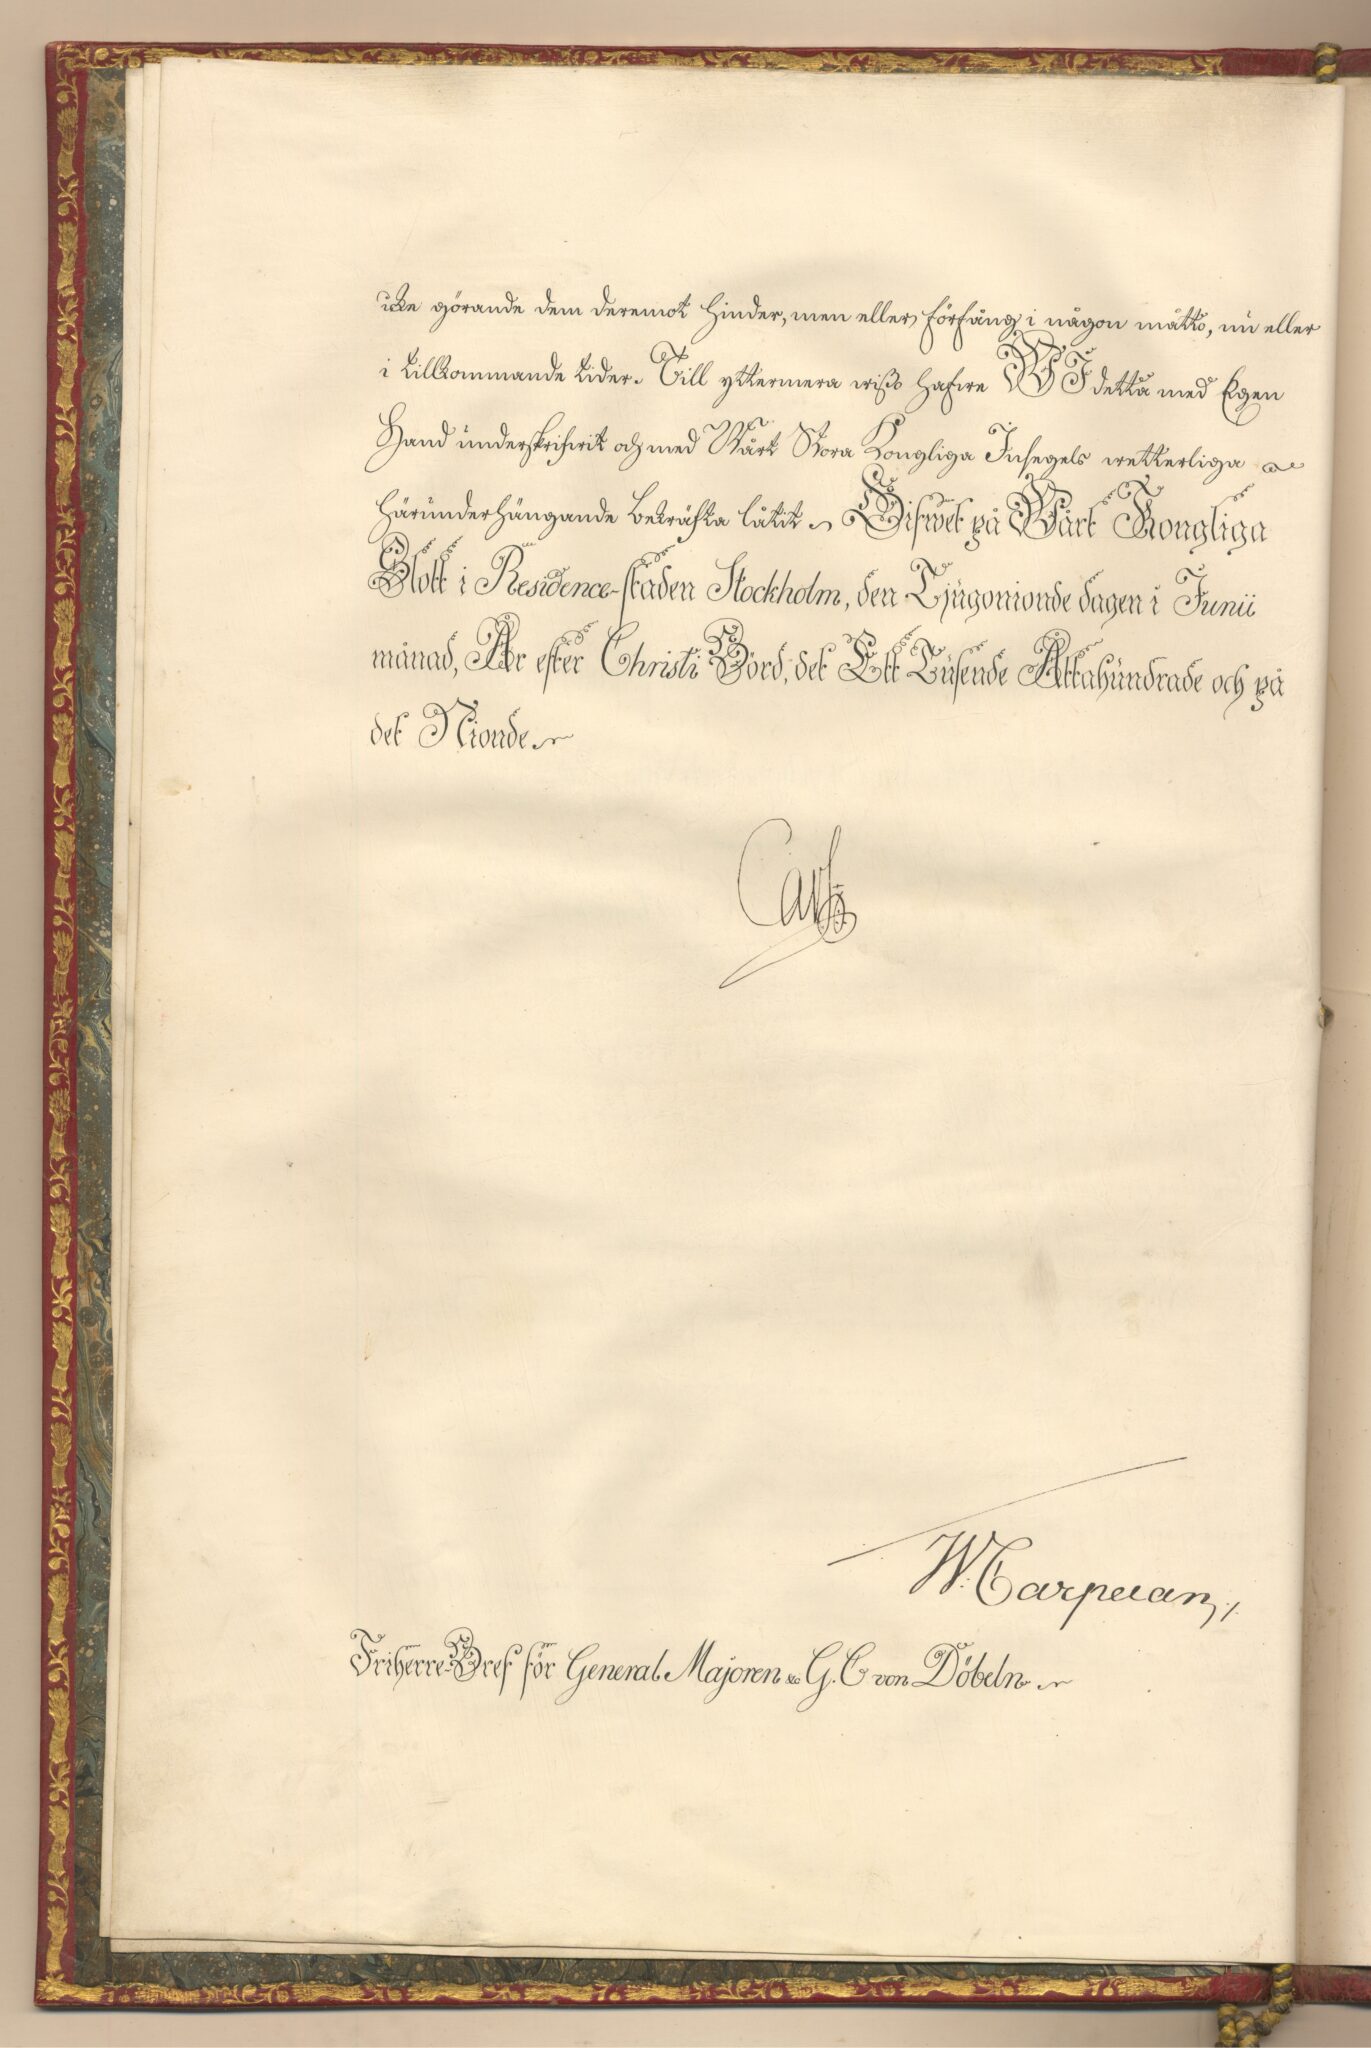 icke görande dem deremot hinder, men eller förfång i någon måtto, nu eller
i tillkommande tider. Till yttermera wisso hafwe WI detta med Egen
Hand underskrifwit och med Wårt Stora Kongliga Insegels wetterliga
härunderhängande bekräfta låtit. Gifwet på Wårt Kongliga
Slott i Residence-staden Stockholm, den Tjugonionde dagen i Junii
månad, År efter Christi Börd, det Ett Tusende Åttahundrade och på
det Nionde.
Carl
W. Carpelan
Friherre-Bref för General Majoren &c G. C von Döbeln.